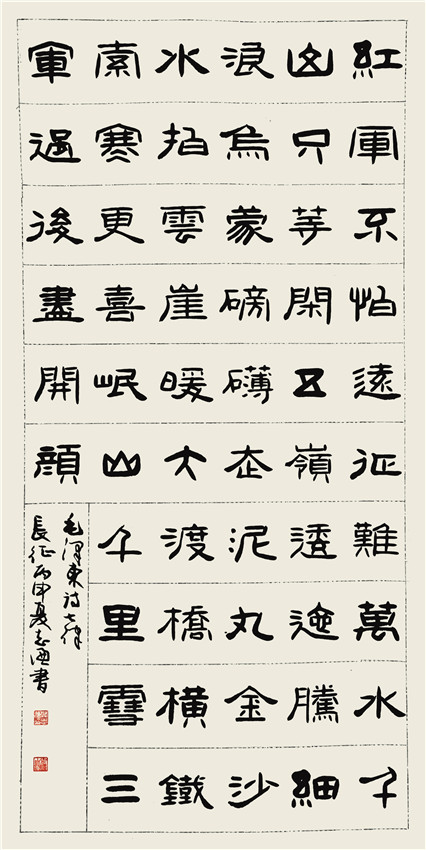 紅軍不怕遠征難萬水千
山只等閑五嶺逶迤騰細
浪烏蒙磅礴走泥丸金沙
水拍雲崖暖大渡橋橫鐵
索寒更喜岷山千里雪三
軍過後盡開顏
毛澤東詩七律
長征丙申夏志書